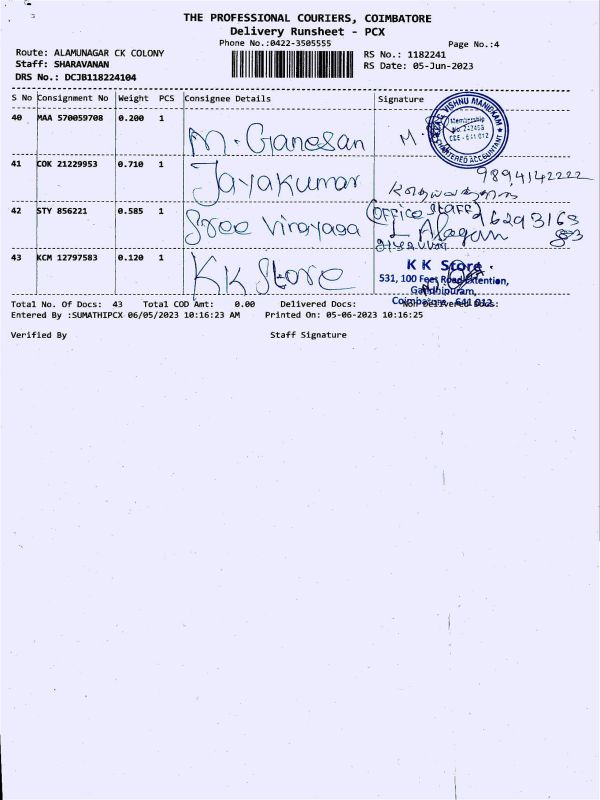 THE PROFESSIONAL COURIERS, COIMBATORE
Delivery Runsheet - PCX
Phone No.:0422-3505555
Page No.:4
Route: ALAMUNAGAR CK COLONY
Staff: SHARAVANAN
DRS No.: DCJB118224104
RS No.: 1182241
RS Date: 05-Jun-2023
S No Consignment No Weight PCS Consignee Details Signature
40 MAA 570059708 0.200 1 M. Ganesan M.
VISHNU MANICKAM
Membership
CBE - 641 012
CHARTERED ACCOUNTANT
41 COK 21229953 0.710 1 Jayakumar 9894142222
42 STY 856221 0.585 1 Sree Vinayaga (OFFICE STAFF)
43 KCM 12797583 0.120 1 KK Store
K K Store
531, 100 Feet Road Extention,
Gandhipuram,
Coimbatore - 641 012
Total No. Of Docs: 43 Total COD Amt: 0.00 Delivered Docs: Non Delivered Docs:
Entered By :SUMATHIPCX 06/05/2023 10:16:23 AM Printed On: 05-06-2023 10:16:25
Verified By Staff Signature